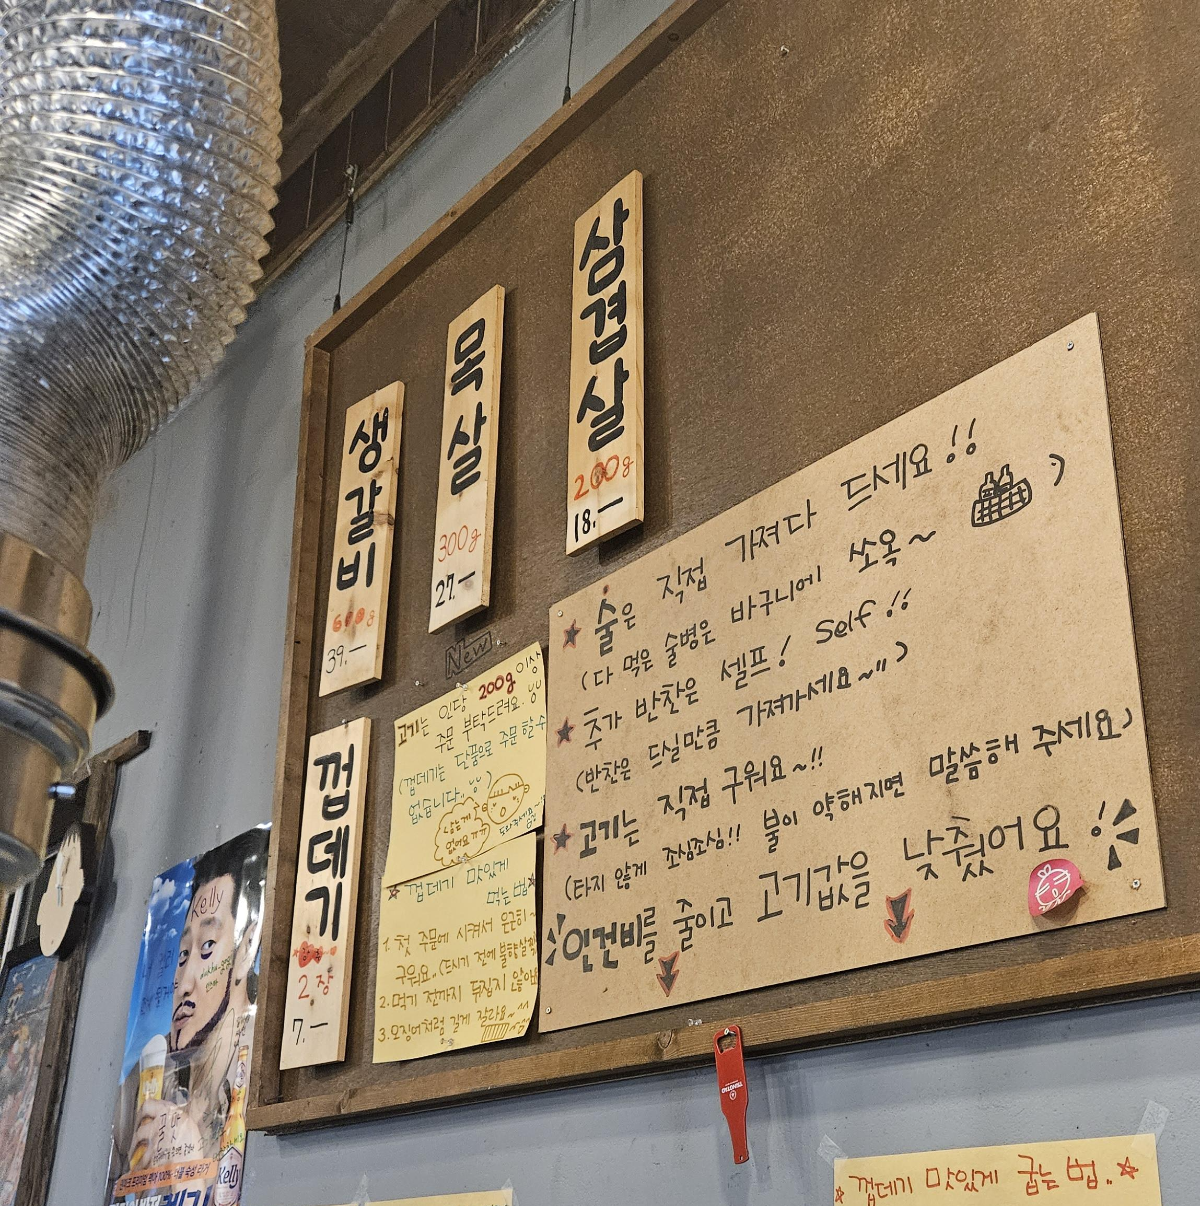 삼겹살
200g
18.-
목살
300g
27.-
생갈비
600g
39.-
껍데기
2장
7.-
New
고기는 인당 200g 이상
주문 부탁드려요.
(껍데기는 단품으로 주문할 수
없습니다..
껍데기 맛있게
먹는법
1. 첫 주문에 시켜서 은근히~
구워요..(드시기 전에
2. 먹기 전까지 뒤집지 않아요
3. 오징어처럼 길게 잘라요~
★ 술은 직접 가져다 드세요!!
(다 먹은 술병은 바구니에 쏘옥~ )
★ 추가 반찬은 셀프! Self!!
(반찬은 드실만큼 가져가세요~!! )
★ 고기는 직접 구워요~!!
(타지 않게 조심조심!! 불이 약해지면 말씀해 주세요)
인건비를 줄이고 고기값을 낮췄어요!
Kelly
Kelly
TSINGTAO
★ 껍데기 맛있게 굽는 법.. ★